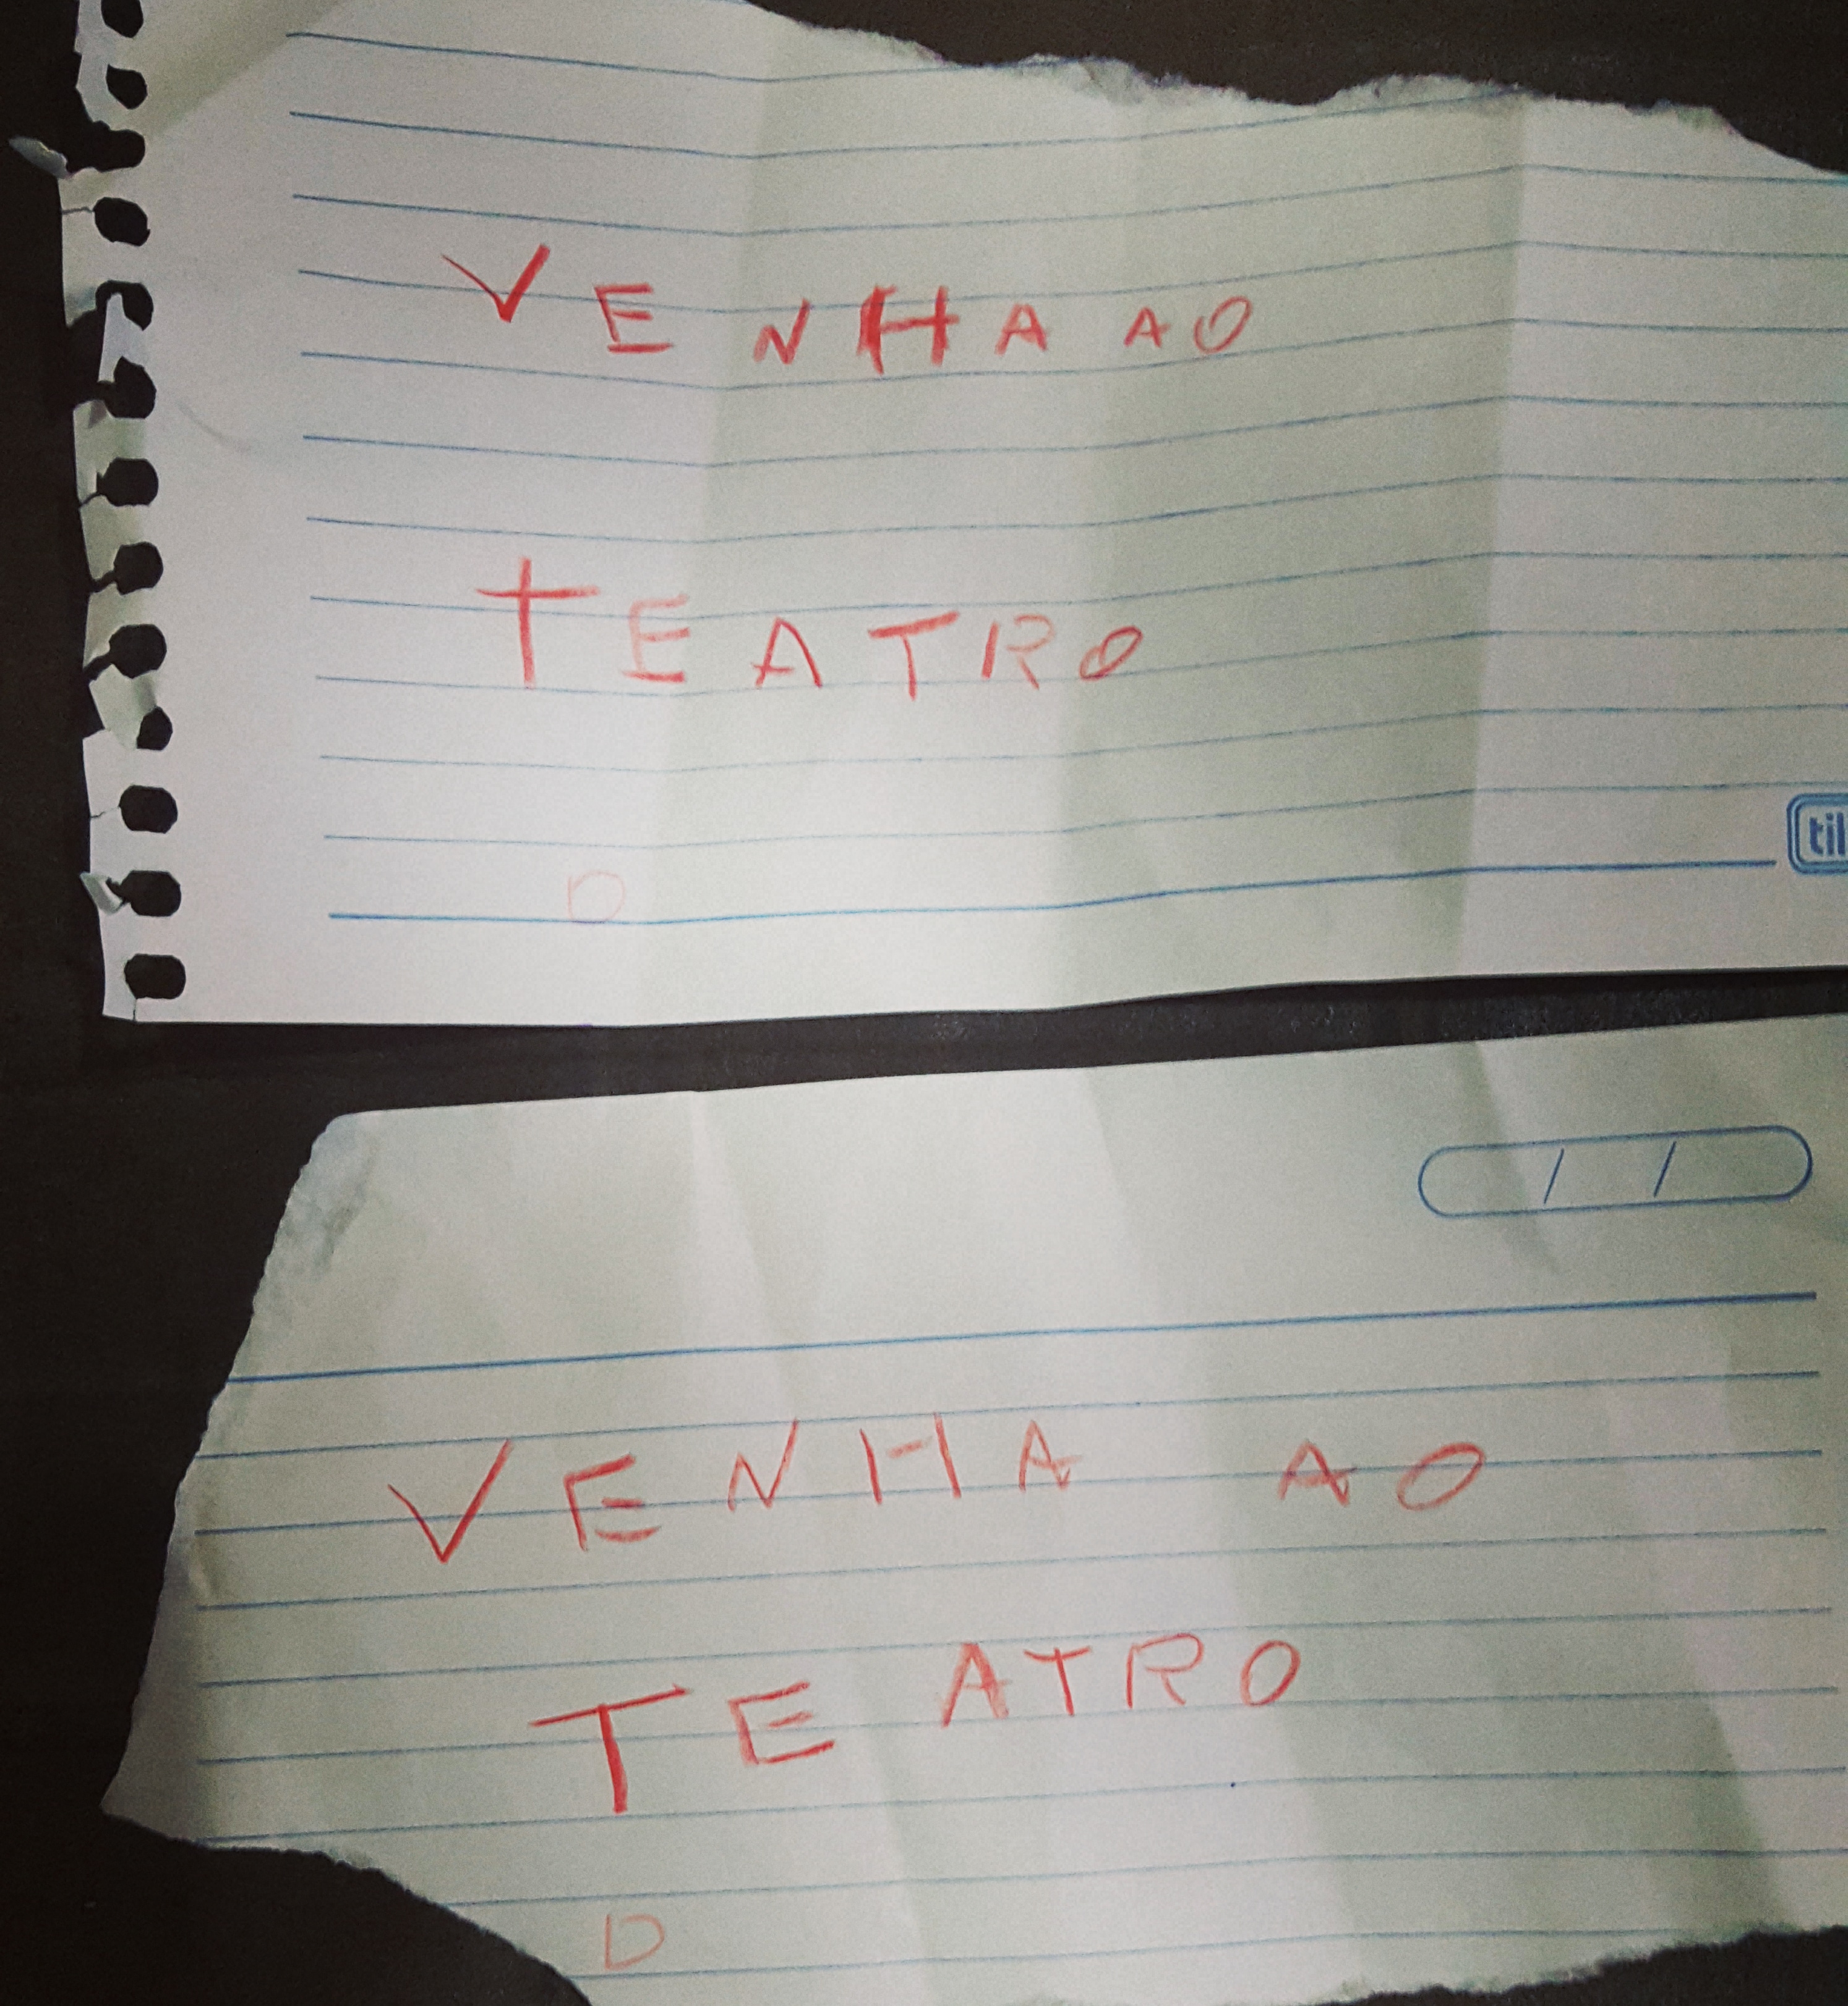 VENHA AO
TEATRO
til
D
VENHA AO
TEATRO
D